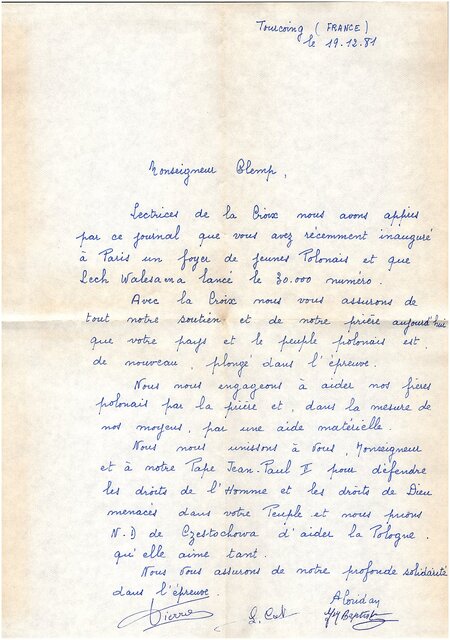 Tourcoing (FRANCE)
le 19.12.81
Monseigneur Glemp,
Lectrices de la Croix nous avons appris
par ce journal que vous avez récemment inauguré
à Paris un foyer de jeunes Polonais et que
Lech Walesa a lancé le 30.000 numéro.
Avec la Croix nous vous assurons de
tout notre soutien et de notre prière aujourd'hui
que votre pays et le peuple polonais est,
de nouveau, plongé dans l'épreuve.
Nous nous engageons à aider nos frères
polonais par la prière et, dans la mesure de
nos moyens, par une aide matérielle.
Nous nous unissons à Vous, Monseigneur
et à notre Pape Jean-Paul II pour défendre
les droits de l'Homme et les droits de Dieu
menacés dans votre Peuple et nous prions
N.D de Czestochowa d'aider la Pologne
qu'elle aime tant.
Nous Vous assurons de notre profonde solidarité
dans l'épreuve.